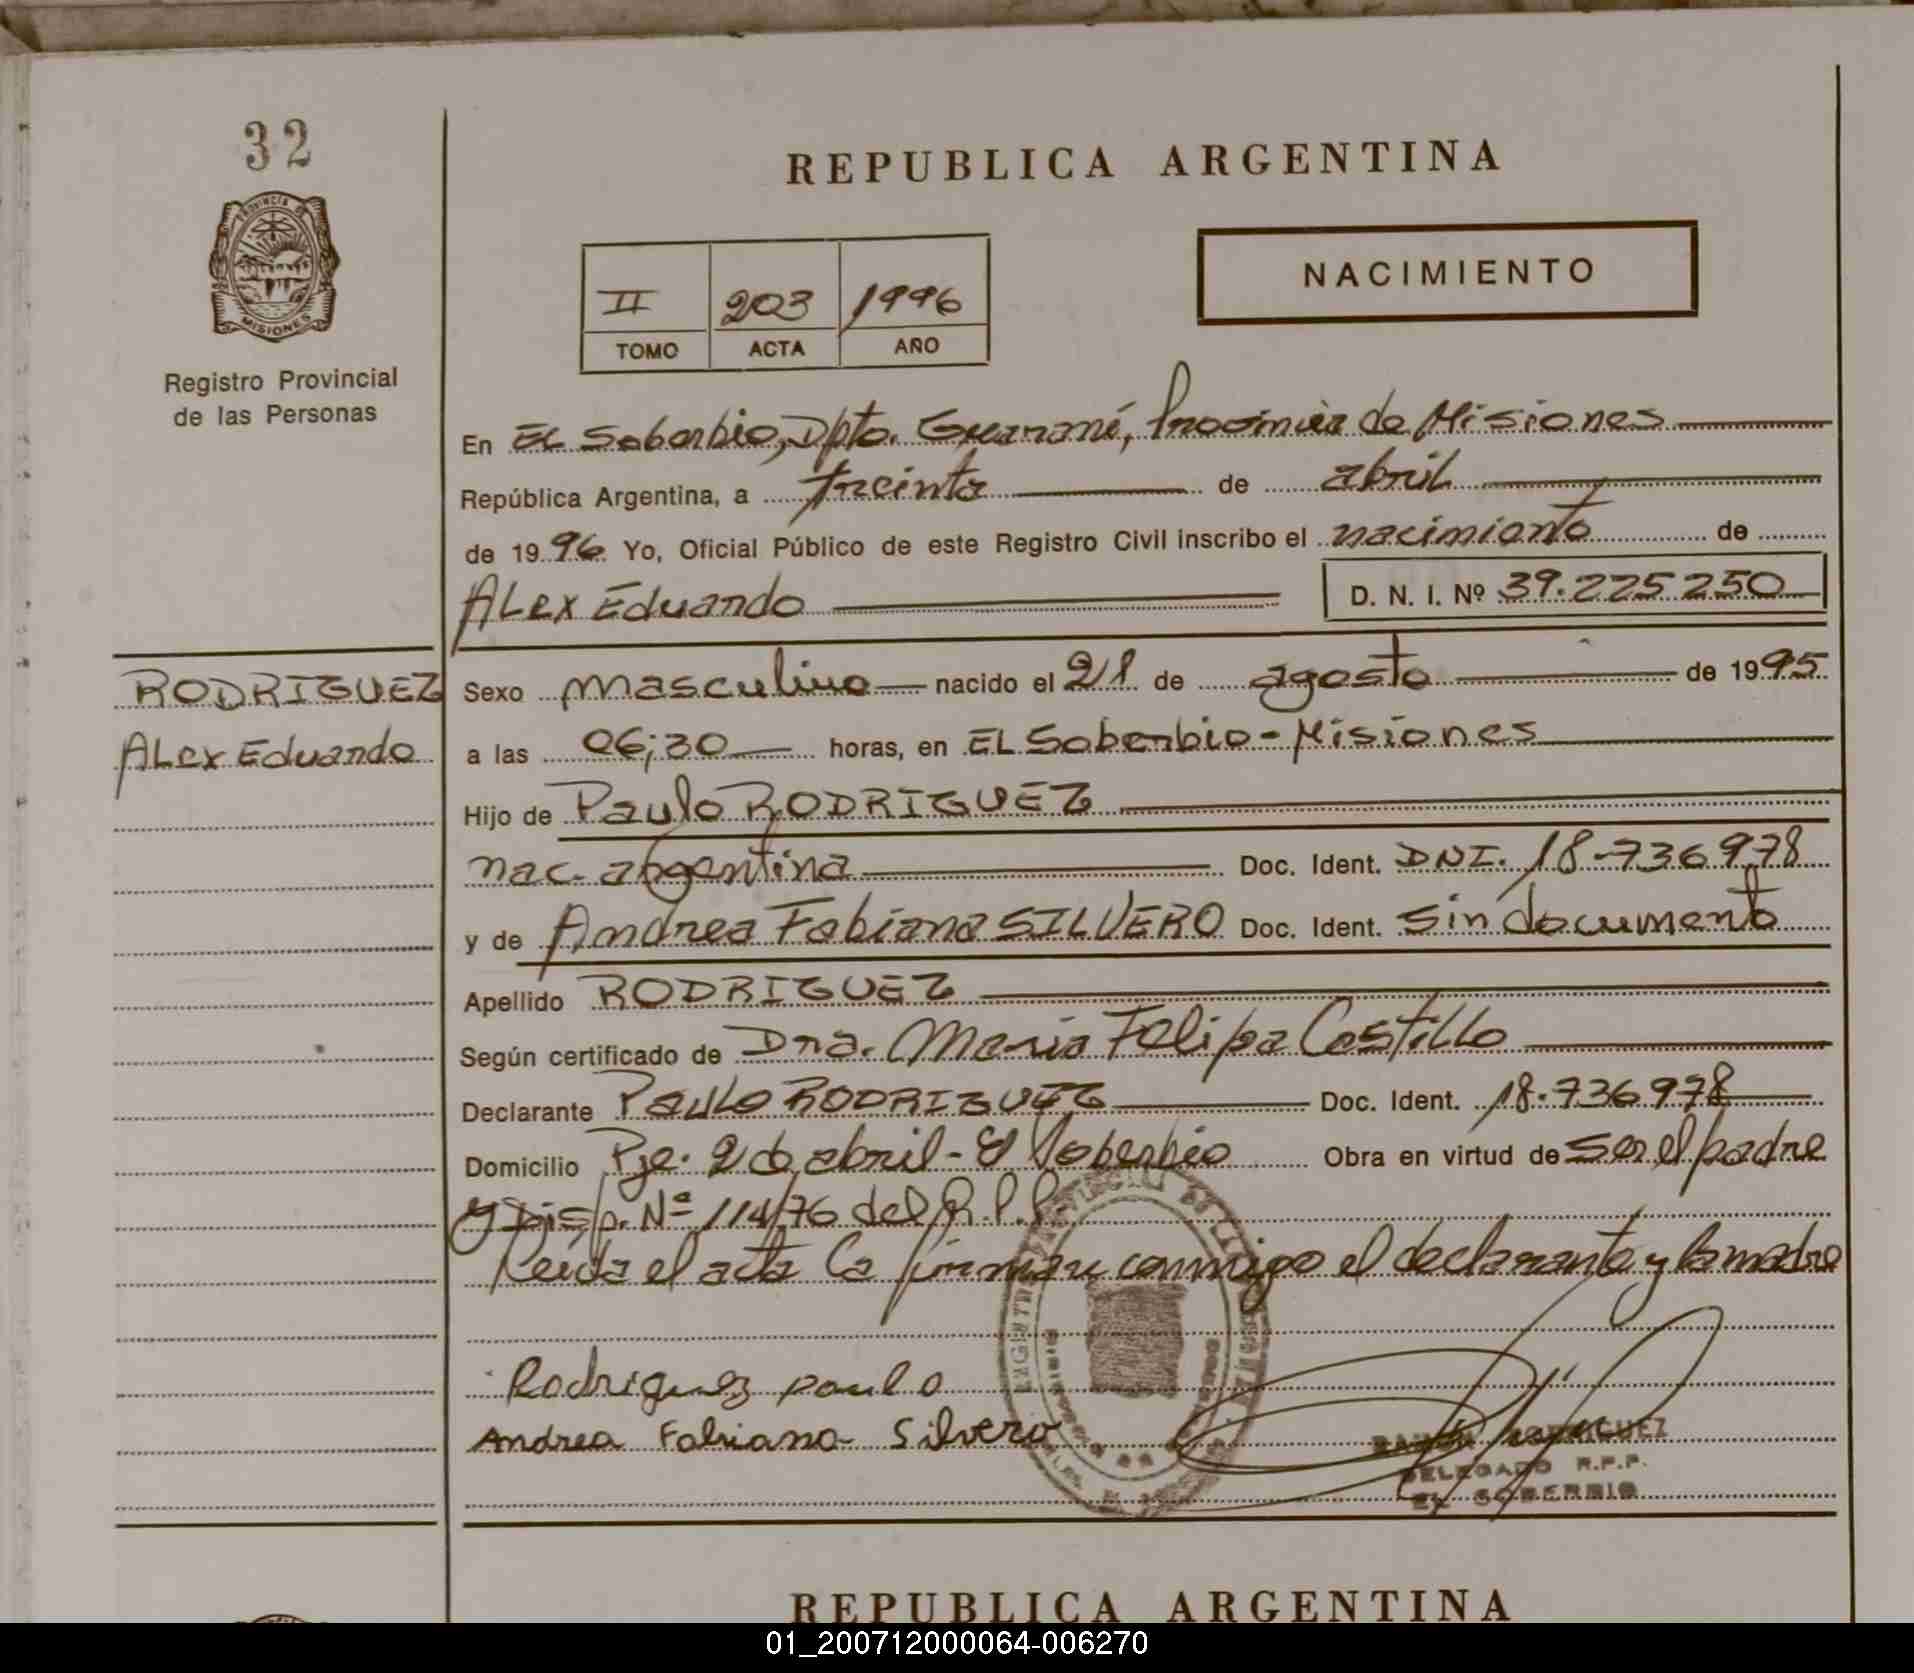 32
PROVINCIA DE
MISIONES
Registro Provincial
de las Personas
REPUBLICA ARGENTINA
II 203 1996
TOMO ACTA AÑO
NACIMIENTO
En El Soberbio, Dpto. Guaraní, Provincia de Misiones
República Argentina, a treinta de abril
de 1996 Yo, Oficial Público de este Registro Civil inscribo el nacimiento de
Alex Eduardo D. N. I. Nº 39.225.250
RODRIGUEZ
Alex Eduardo
Sexo masculino nacido el 21 de agosto de 1995
a las 06;30 horas, en El Soberbio - Misiones
Hijo de Paulo RODRIGUEZ
nac. argentina Doc. Ident. DNI. 18-736978
y de Andrea Fabiana SILVERO Doc. Ident. sin documento
Apellido RODRIGUEZ
Según certificado de Dra. Maria Felipa Castillo
Declarante Paulo RODRIGUEZ Doc. Ident. 18.736978
Domicilio Pje. 2 de abril - El Soberbio Obra en virtud de ser el padre
y Disp. Nº 114/76 del R.P.P.
Leída el acta la firman conmigo el declarante y la madre
Rodriguez paulo
Andrea Fabiana Silvero
RODRIGUEZ
DELEGADO R.P.P.
EL SOBERBIO
REPUBLICA ARGENTINA
01_200712000064-006270